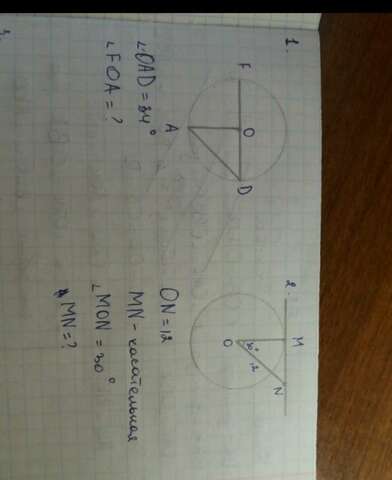 1.
F
O
A
D
∠OAD = 34°
∠FOA = ?
2.
M
N
O
30°
12
ON = 12
MN - касательная
∠MON = 30°
MN = ?